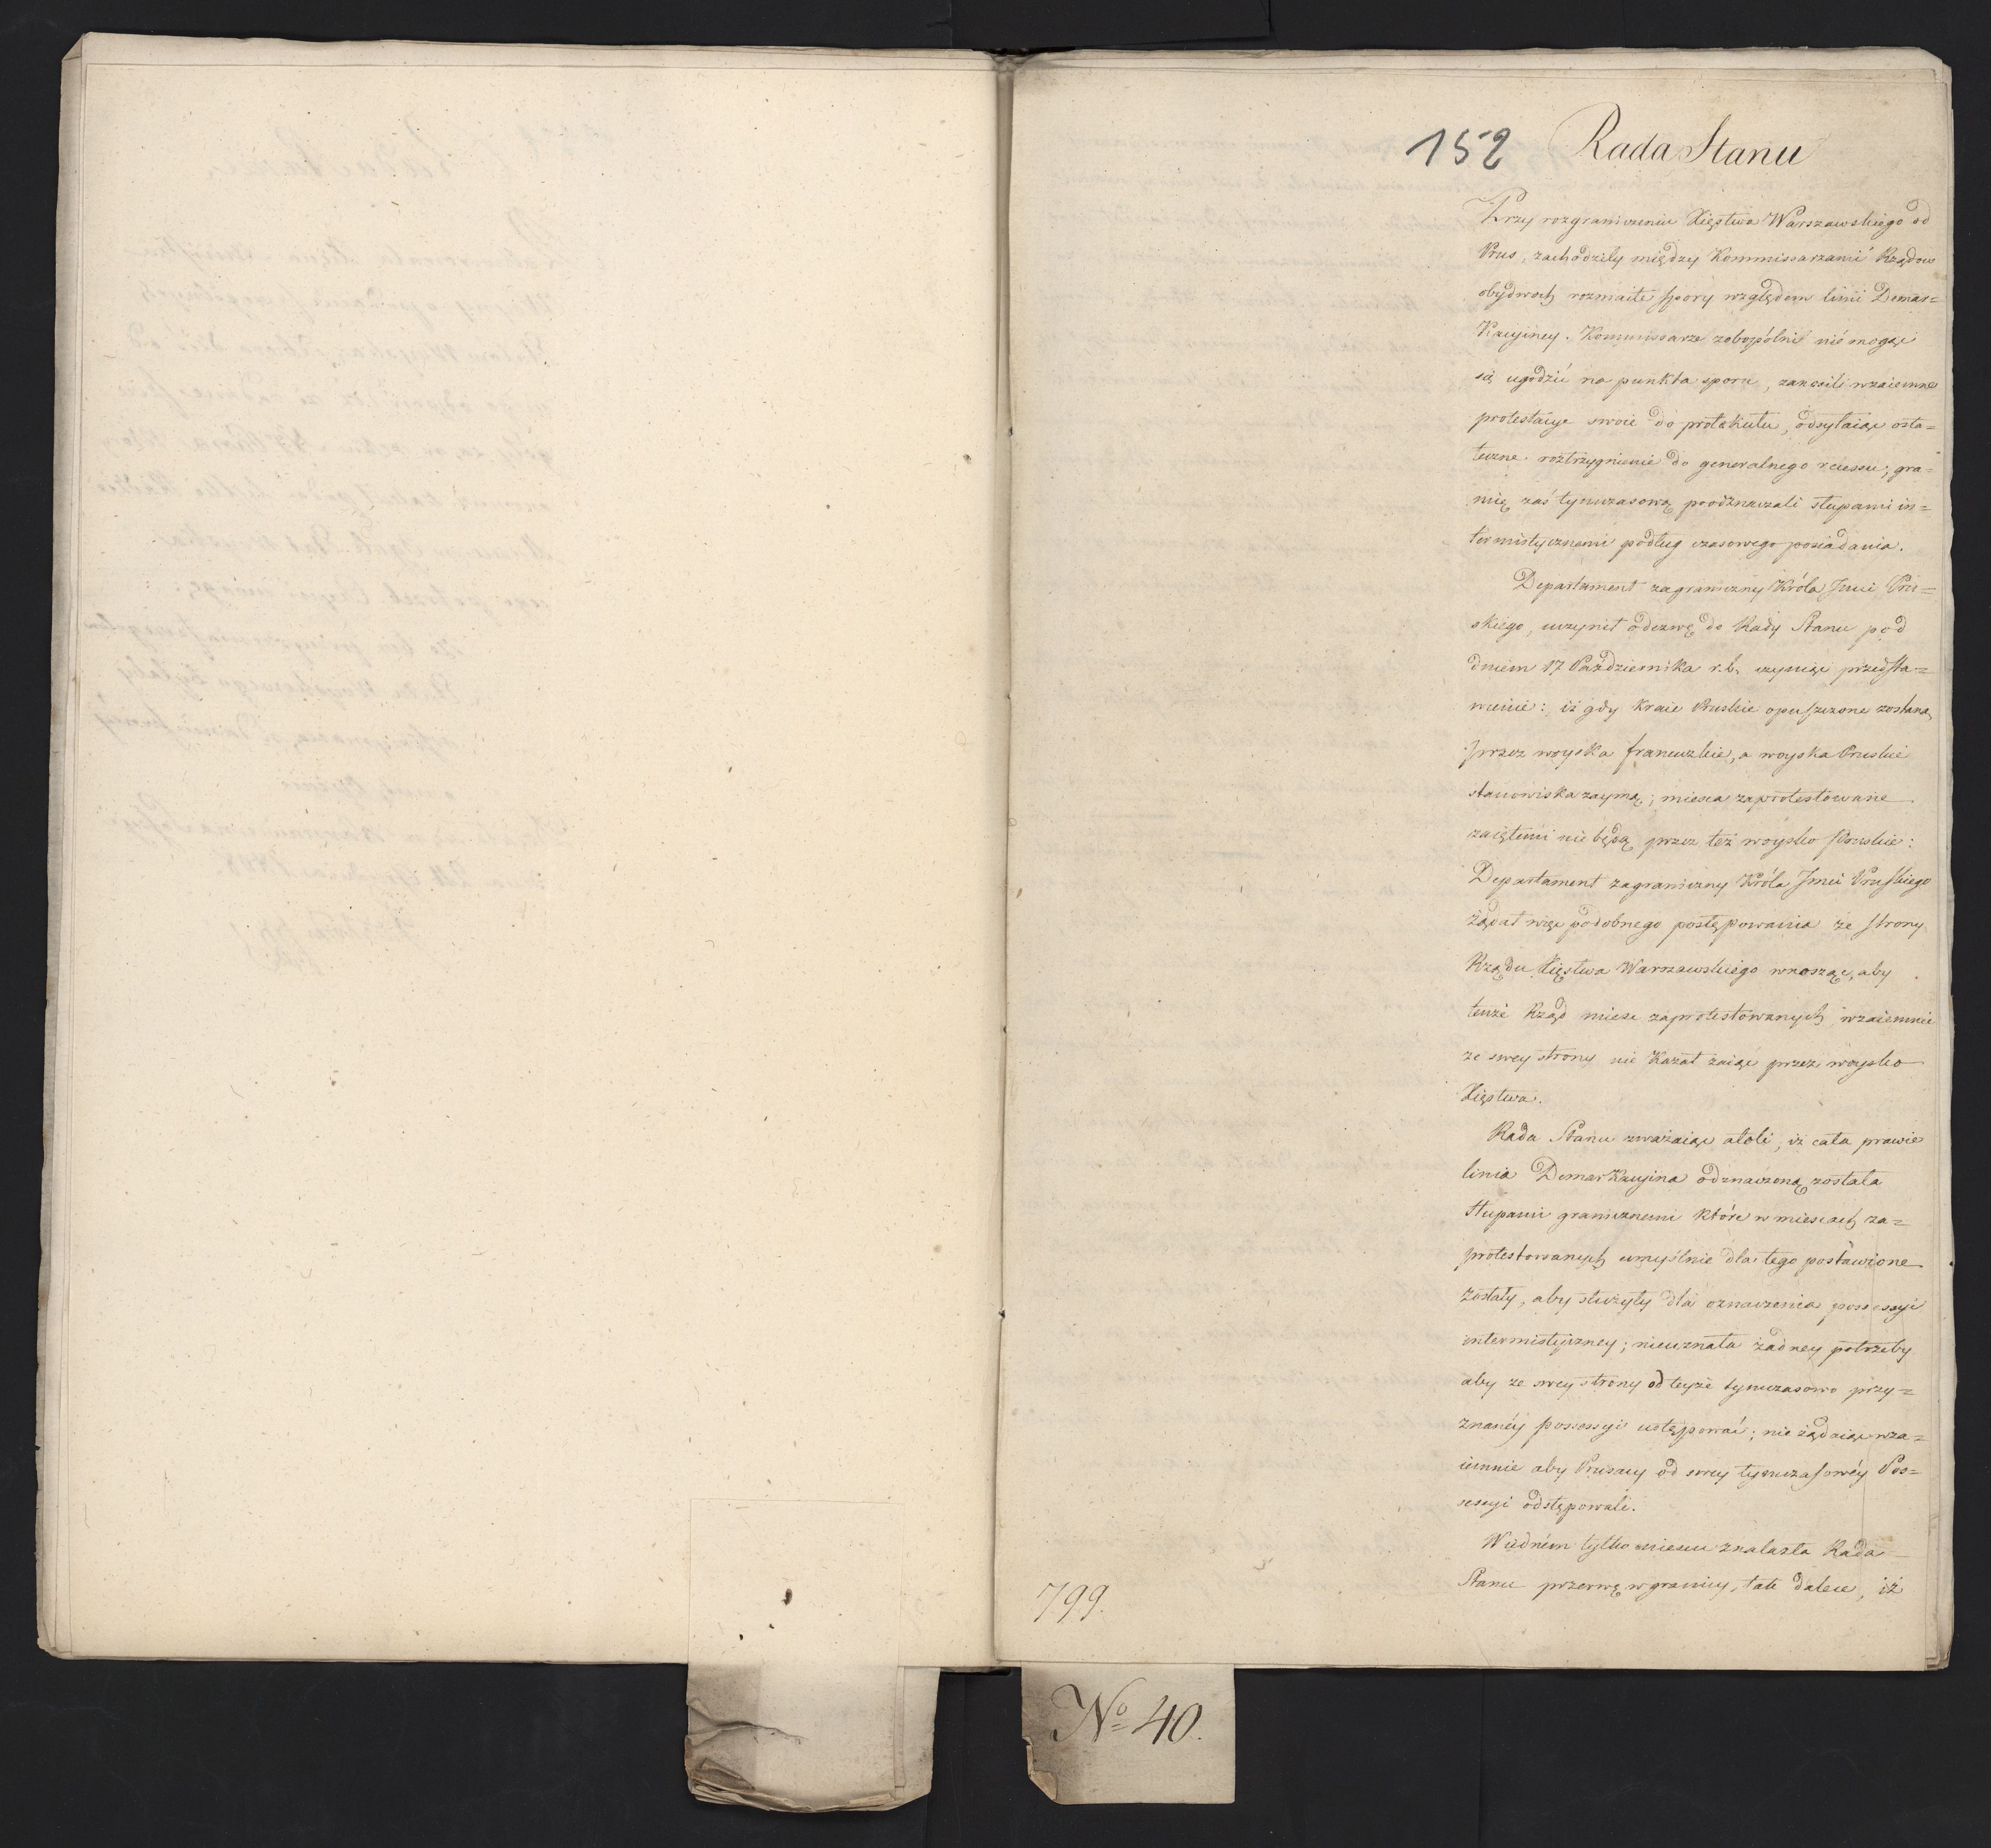 152 Rada Stanu
Przy rozgraniczeniu Xięstwa Warszawskiego od
Prus, zachodziły między Kommissarzami Rządow
obydwóch rozmaite spory względem linii Demar=
Kacyiney. Kommissarze zobopólni nie mogąc
się ugodzić na punkta sporu, zanosili wzaiemne
protestacye swoie do protokułu, odsyłaiąc osta=
teczne roztrzygnienie do generalnego recessu; gra=
nicę zaś tymczasową poodznaczali słupami in=
termistycznemi podług czasowego posiadania.
Departament zagraniczny Króla Jmci Pru=
skiego, uczynił odezwę do Rady Stanu pod
dniem 17 Października r.b. czyniąc przedsta=
wienie: iż gdy Kraie Pruskie opuszczone zostaną
przez woyska francuzkie, a woyska Pruskie
stanowiska zaymą; mieysca zaprotestowane
zaiętemi nie będą przez też woysko Pruskie:
Departament zagraniczny Króla Jmci Pruskiego
żądał więc podobnego postępowania ze strony
Rządu Xięstwa Warszawskiego wnosząc, aby
tenże Rząd miesc zaprotestowanych wzaiemnie
ze swey strony nie Kazał zaiąć przez woysko
Xięstwa.
Rada Stanu zważaiąc atoli, iż cała prawie
linia DemarKacyina odznaczoną została
słupami granicznemi które w miescach za=
protestowanych umyślnie dla tego postawione
zostały, aby służyły dla oznaczenia possessyi
intermistyczney; nieuznała żadney potrzeby
aby ze swey strony od teyże tymczasowo przy=
znanéy possessyi ustępować; nie żądaiąc wza=
iemnie aby Prusacy od swey tymczasowéy Pos=
sessyi odstępowali.
W iedném tylko miescu znalazła Rada
Stanu przerwę w granicy, tak dalece, iż
799.
No 40.